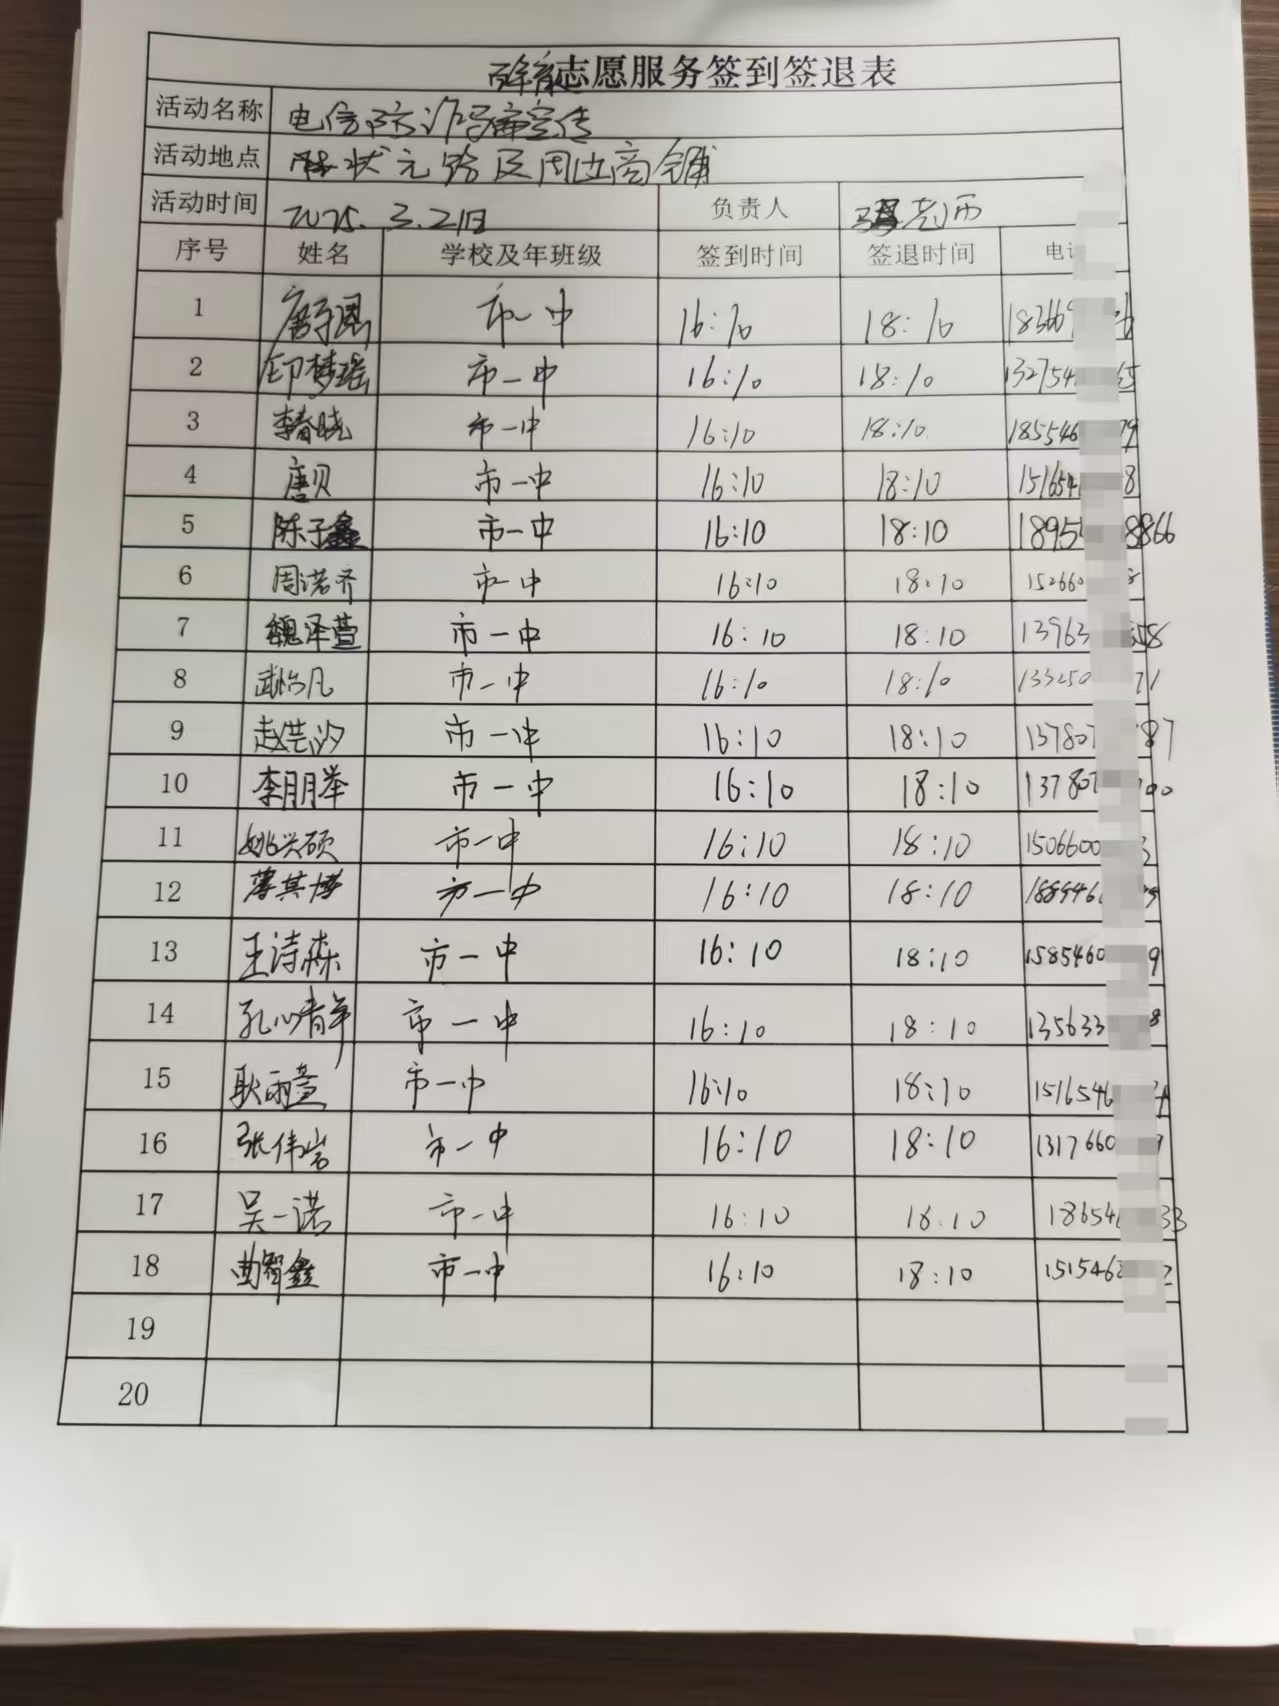 志愿服务签到签退表
活动名称 电信防诈骗宣传
活动地点 状元路及周边商铺
活动时间 2025.3.21日 负责人 老师
序号 姓名 学校及年班级 签到时间 签退时间 电
1 唐子涵 市一中 16:10 18:10 183669
2 印梦瑶 市一中 16:10 18:10 132754 5
3 李春晓 市一中 16:10 18:10 185546 79
4 唐贝 市一中 16:10 18:10 151654 8
5 陈子鑫 市一中 16:10 18:10 1895 8866
6 周诺齐 市一中 16:10 18:10 152660 8
7 魏泽萱 市一中 16:10 18:10 13963 58
8 武怡凡 市一中 16:10 18:10 133250 71
9 赵芸汐 市一中 16:10 18:10 13780 87
10 李朋举 市一中 16:10 18:10 13780 00
11 姚兴硕 市一中 16:10 18:10 1506600 3
12 薄其博 市一中 16:10 18:10 188946 9
13 王诗森 市一中 16:10 18:10 1585460 9
14 孔心 市一中 16:10 18:10 135633 8
15 耿雨萱 市一中 16:10 18:10 1516546
16 张伟岩 市一中 16:10 18:10 1317660 9
17 吴一诺 市一中 16:10 18:10 18654 33
18 曲智鑫 市一中 16:10 18:10 151546 2
19
20